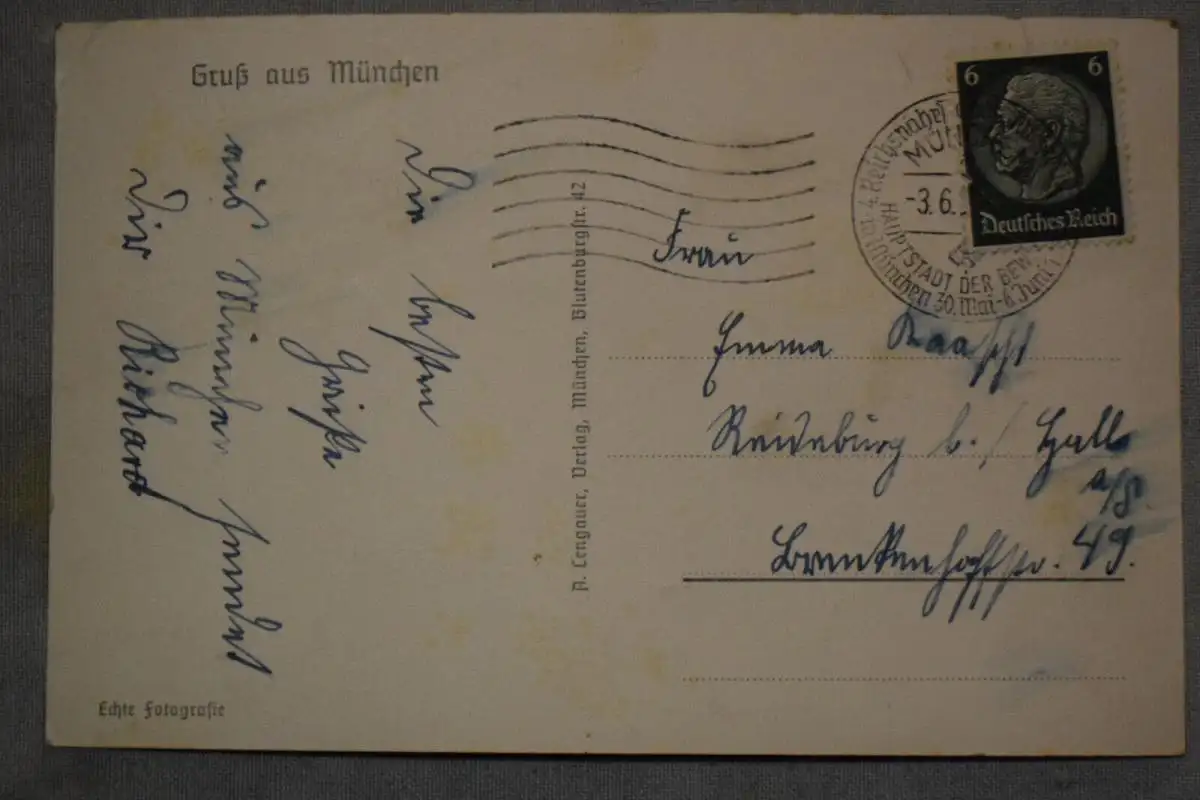 Gruß aus München
Die besten
Grüße
aus München sendet
Dir Richard
Echte Fotografie
A. Lengauer, Verlag, München, Blutenburgstr. 42
6 6
Deutsches Reich
MÜN
-3.6.
HAUPTSTADT DER BEW
4. Reichsnährst
München 30. Mai-6. Juni
Frau
Emma
Reideburg b./ Halle
a/S.
Brenkenhoffstr. 49.